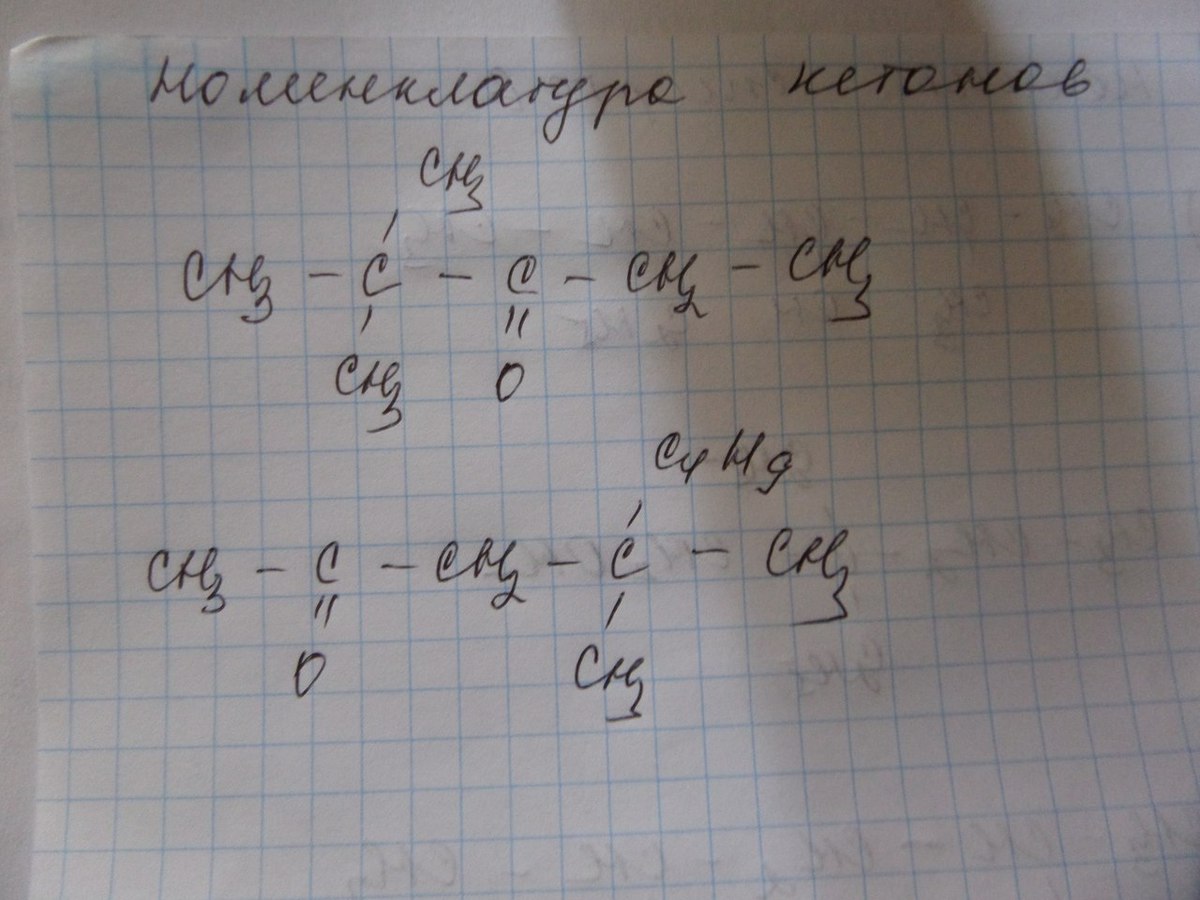 Номенклатура кетонов
CH3
CH3 - C - C - CH2 - CH3
CH3 O
C4H9
CH3 - C - CH2 - C - CH3
O CH3